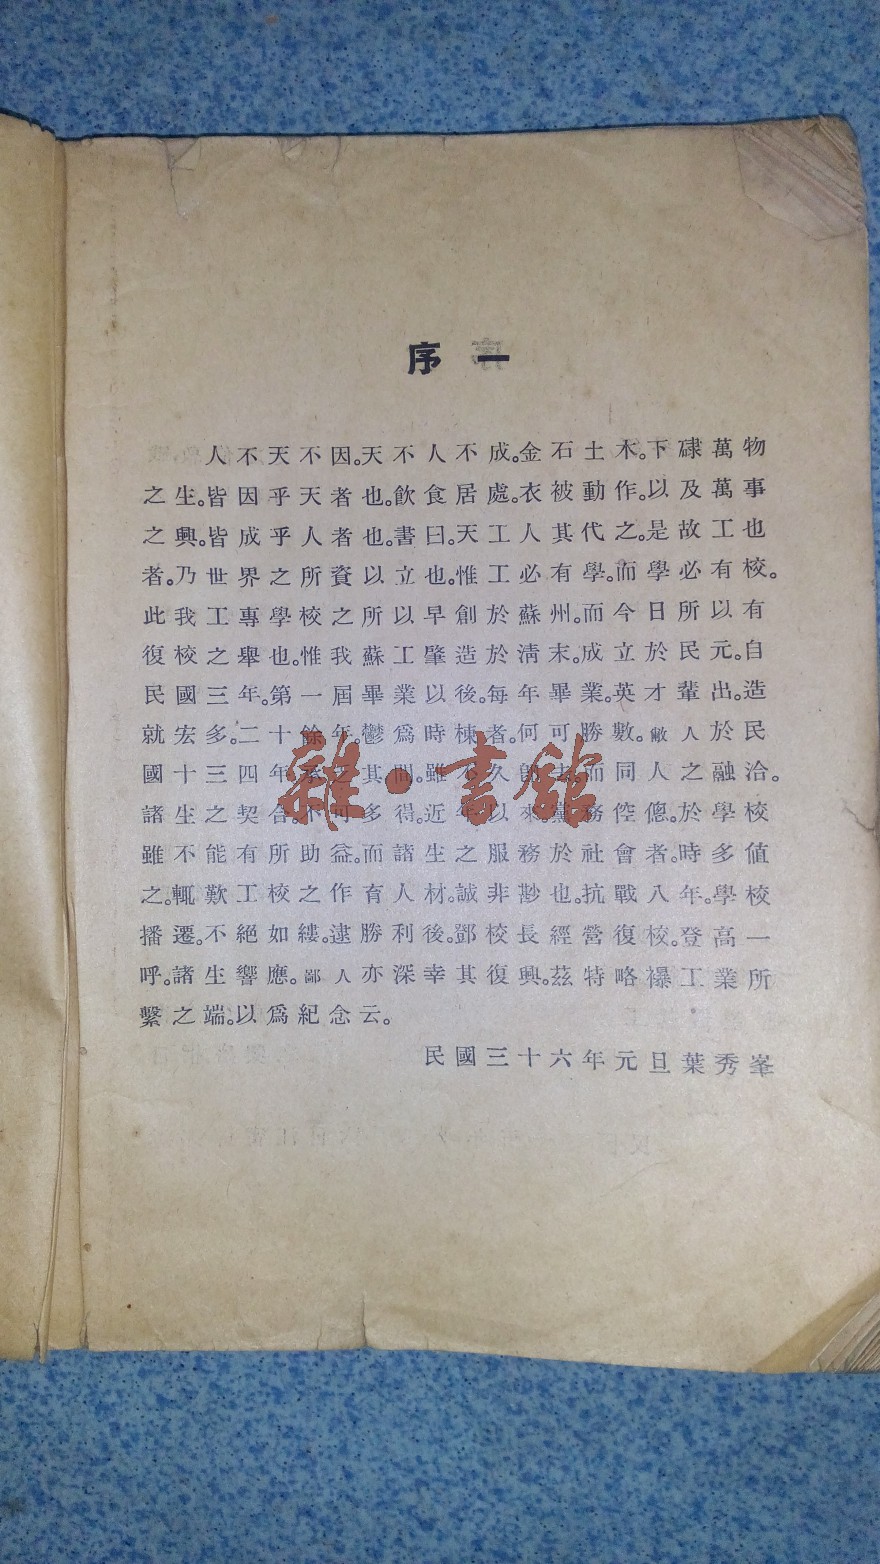 序一
人不天不因。天不人不成。金石土木。下隷萬物
之生。皆因乎天者也。飲食居處。衣被動作。以及萬事
之興。皆成乎人者也。書曰。天工人其代之。是故工也
者。乃世界之所資以立也。惟工必有學。而學必有校。
此我工專學校之所以早創於蘇州。而今日所以有
復校之舉也。惟我蘇工肇造於淸末。成立於民元。自
民國三年。第一屆畢業以後。每年畢業。英才輩出。造
就宏多。二十餘年。鬱爲時棟者。何可勝數。敝人於民
國十三四年承乏其間。雖不久卽去。而同人之融洽。
諸生之契合。不可多得。近年以來。黨務倥傯。於學校
雖不能有所助益。而諸生之服務於社會者。時多値
之。輒歎工校之作育人材。誠非尠也。抗戰八年。學校
播遷。不絕如縷。逮勝利後。鄧校長經營復校。登高一
呼。諸生響應。鄙人亦深幸其復興。茲特略襮工業所
繫之端。以爲紀念云。
民國三十六年元旦葉秀峯
雜·書館